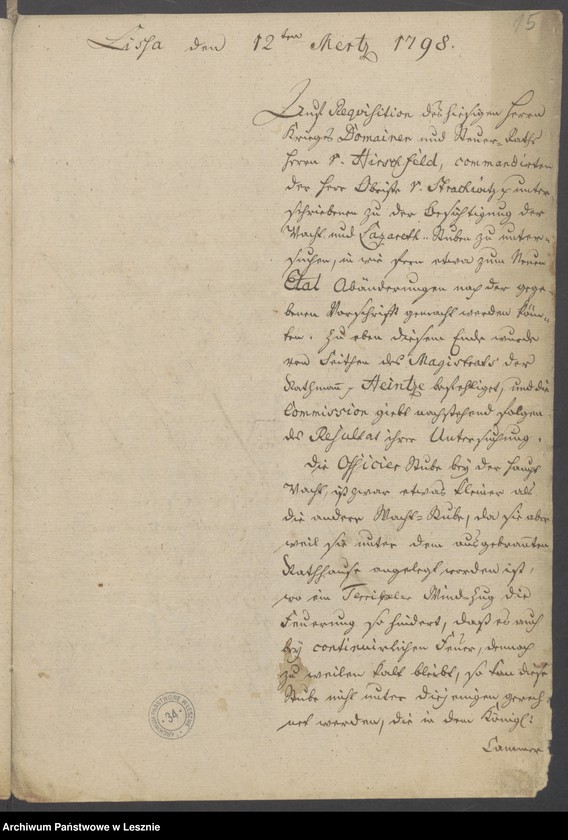 15
Lissa den 12ten Mertz 1798.
Auf Requisition des hiesigen Herrn
Krieges Domainen und Steuer-Raths
Herrn v. Hirschfeld, commandirten
der Herr Obriste v. Strachwitz unter-
schriebenen zu der Besichtigung der
Wacht und Lazareth-Stuben zu unter-
suchen, in wie fern etwa zum Neuen
Etat Abänderungen nach der gege-
benen Vorschrifft gemacht werden kön-
ten. Zu eben diesem Ende wurde
von Seithen des Magistrats der
Rathmann Heintze befehliget, und die
Commission giebt nachstehend folgen-
des Resultat ihrer Untersuchung.
Die Officier Stube bey der Haupt
Wacht, ist zwar etwas kleiner als
die andere Wacht-Stube, da sie aber
weil sie unter dem ausgebrannten
Rathhause angelegt worden ist,
wo ein Wind-Zug die
Feuerung so hindert, daß es auch
bey continuirlichen Feuer, dennoch
zu weilen kalt bleibt, so kan diese
Stube nicht unter diejenigen gerech-
net werden, die in dem Königl:
Cammer
ARCHIWUM PAŃSTWOWE W LESZNIE
34
Archiwum Państwowe w Lesznie